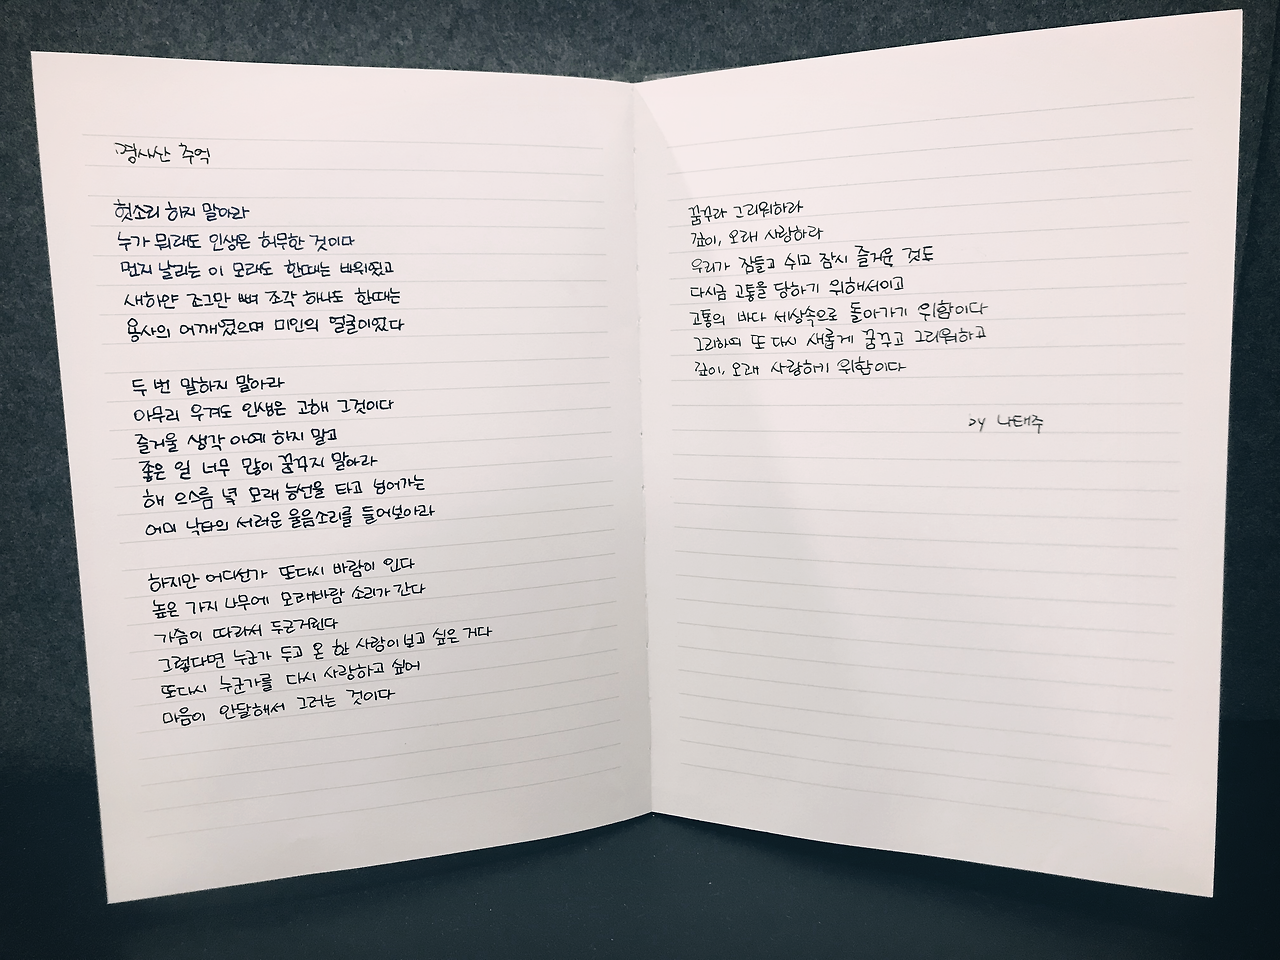 명사산 추억
헛소리 하지 말아라
누가 뭐래도 인생은 허무한 것이다
먼지 날리는 이 모래도 한때는 바위였고
새하얀 조그만 뼈 조각 하나도 한때는
용사의 어깨였으며 미인의 얼굴이었다
두 번 말하지 말아라
아무리 우겨도 인생은 고해 그것이다
즐거울 생각 아예 하지 말고
좋은 일 너무 많이 꿈꾸지 말아라
해 으스름 녘 모래 능선을 타고 넘어가는
어미 낙타의 서러운 울음소리를 들어보아라
하지만 어디선가 또다시 바람이 인다
높은 가지 나무에 모래바람 소리가 간다
가슴이 따라서 두근거린다
그렇다면 누군가 두고 온 한 사람이 보고 싶은 거다
또다시 누군가를 다시 사랑하고 싶어
마음이 안달해서 그러는 것이다
꿈꾸라 그리워하라
깊이, 오래 사랑하라
우리가 잠들고 쉬고 잠시 즐거운 것도
다시금 고통을 당하기 위해서이고
고통의 바다 세상속으로 돌아가기 위함이다
그리하여 또 다시 새롭게 꿈꾸고 그리워하고
깊이, 오래 사랑하기 위함이다
by 나태주